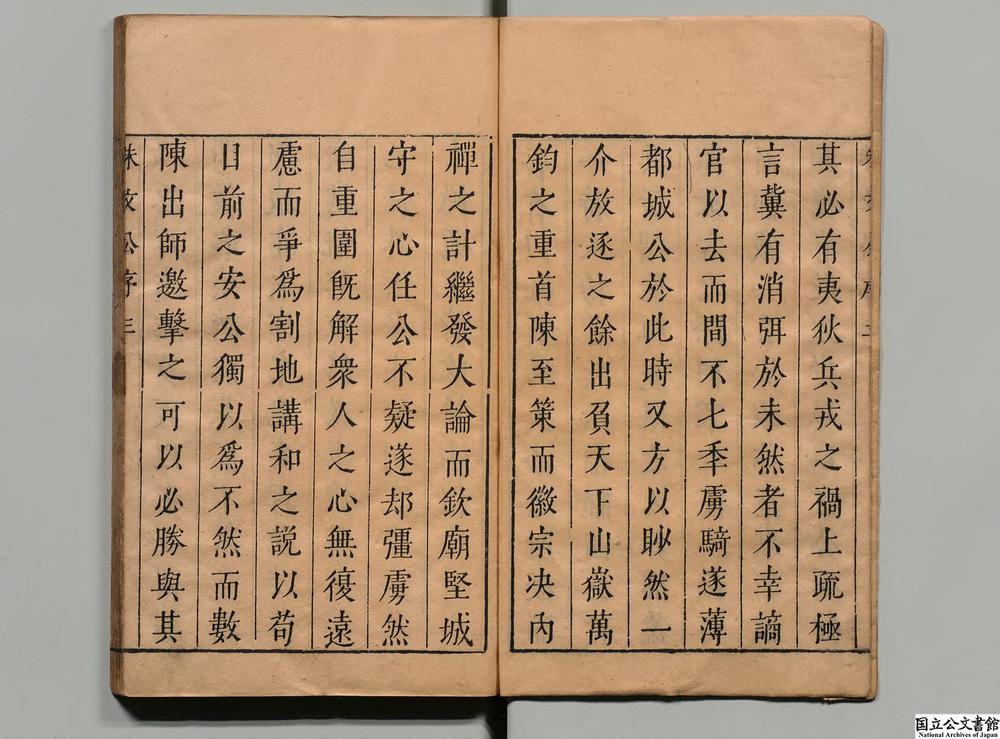 其必有夷狄兵戎之禍上疏極
言冀有消弭於未然者不幸謫
官以去而間不七秊虜騎遂薄
都城公於此時又方以眇然一
介放逐之餘出負天下山嶽萬
鈞之重首陳至策而徽宗决內
禪之計繼發大論而欽廟堅城
守之心任公不疑遂却彊虜然
自重圍旣解衆人之心無復遠
慮而爭爲割地講和之說以苟
目前之安公獨以爲不然而數
陳出師邀擊之可以必勝與其
朱文公序 三
国立公文書館
National Archives of Japan